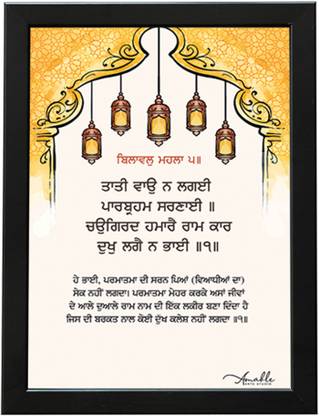 ਬਿਲਾਵਲੁ ਮਹਲਾ ੫॥
ਤਾਤੀ ਵਾਉ ਨ ਲਗਈ
ਪਾਰਬ੍ਰਹਮ ਸਰਣਾਈ ॥
ਚਉਗਿਰਦ ਹਮਾਰੈ ਰਾਮ ਕਾਰ
ਦੁਖੁ ਲਗੈ ਨ ਭਾਈ ॥੧॥
ਹੇ ਭਾਈ, ਪਰਮਾਤਮਾ ਦੀ ਸਰਨ ਪਿਆਂ (ਵਿਆਧੀਆਂ ਦਾ)
ਸੇਕ ਨਹੀਂ ਲਗਦਾ। ਪਰਮਾਤਮਾ ਮੇਹਰ ਕਰਕੇ ਅਸਾਂ ਜੀਵਾਂ
ਦੇ ਆਲੇ ਦੁਆਲੇ ਰਾਮ ਨਾਮ ਦੀ ਇਕ ਲਕੀਰ ਬਣਾ ਦਿੰਦਾ ਹੈ
ਜਿਸ ਦੀ ਬਰਕਤ ਨਾਲ ਕੋਈ ਦੁੱਖ ਕਲੇਸ਼ ਨਹੀਂ ਲਗਦਾ ॥੧॥
Amable